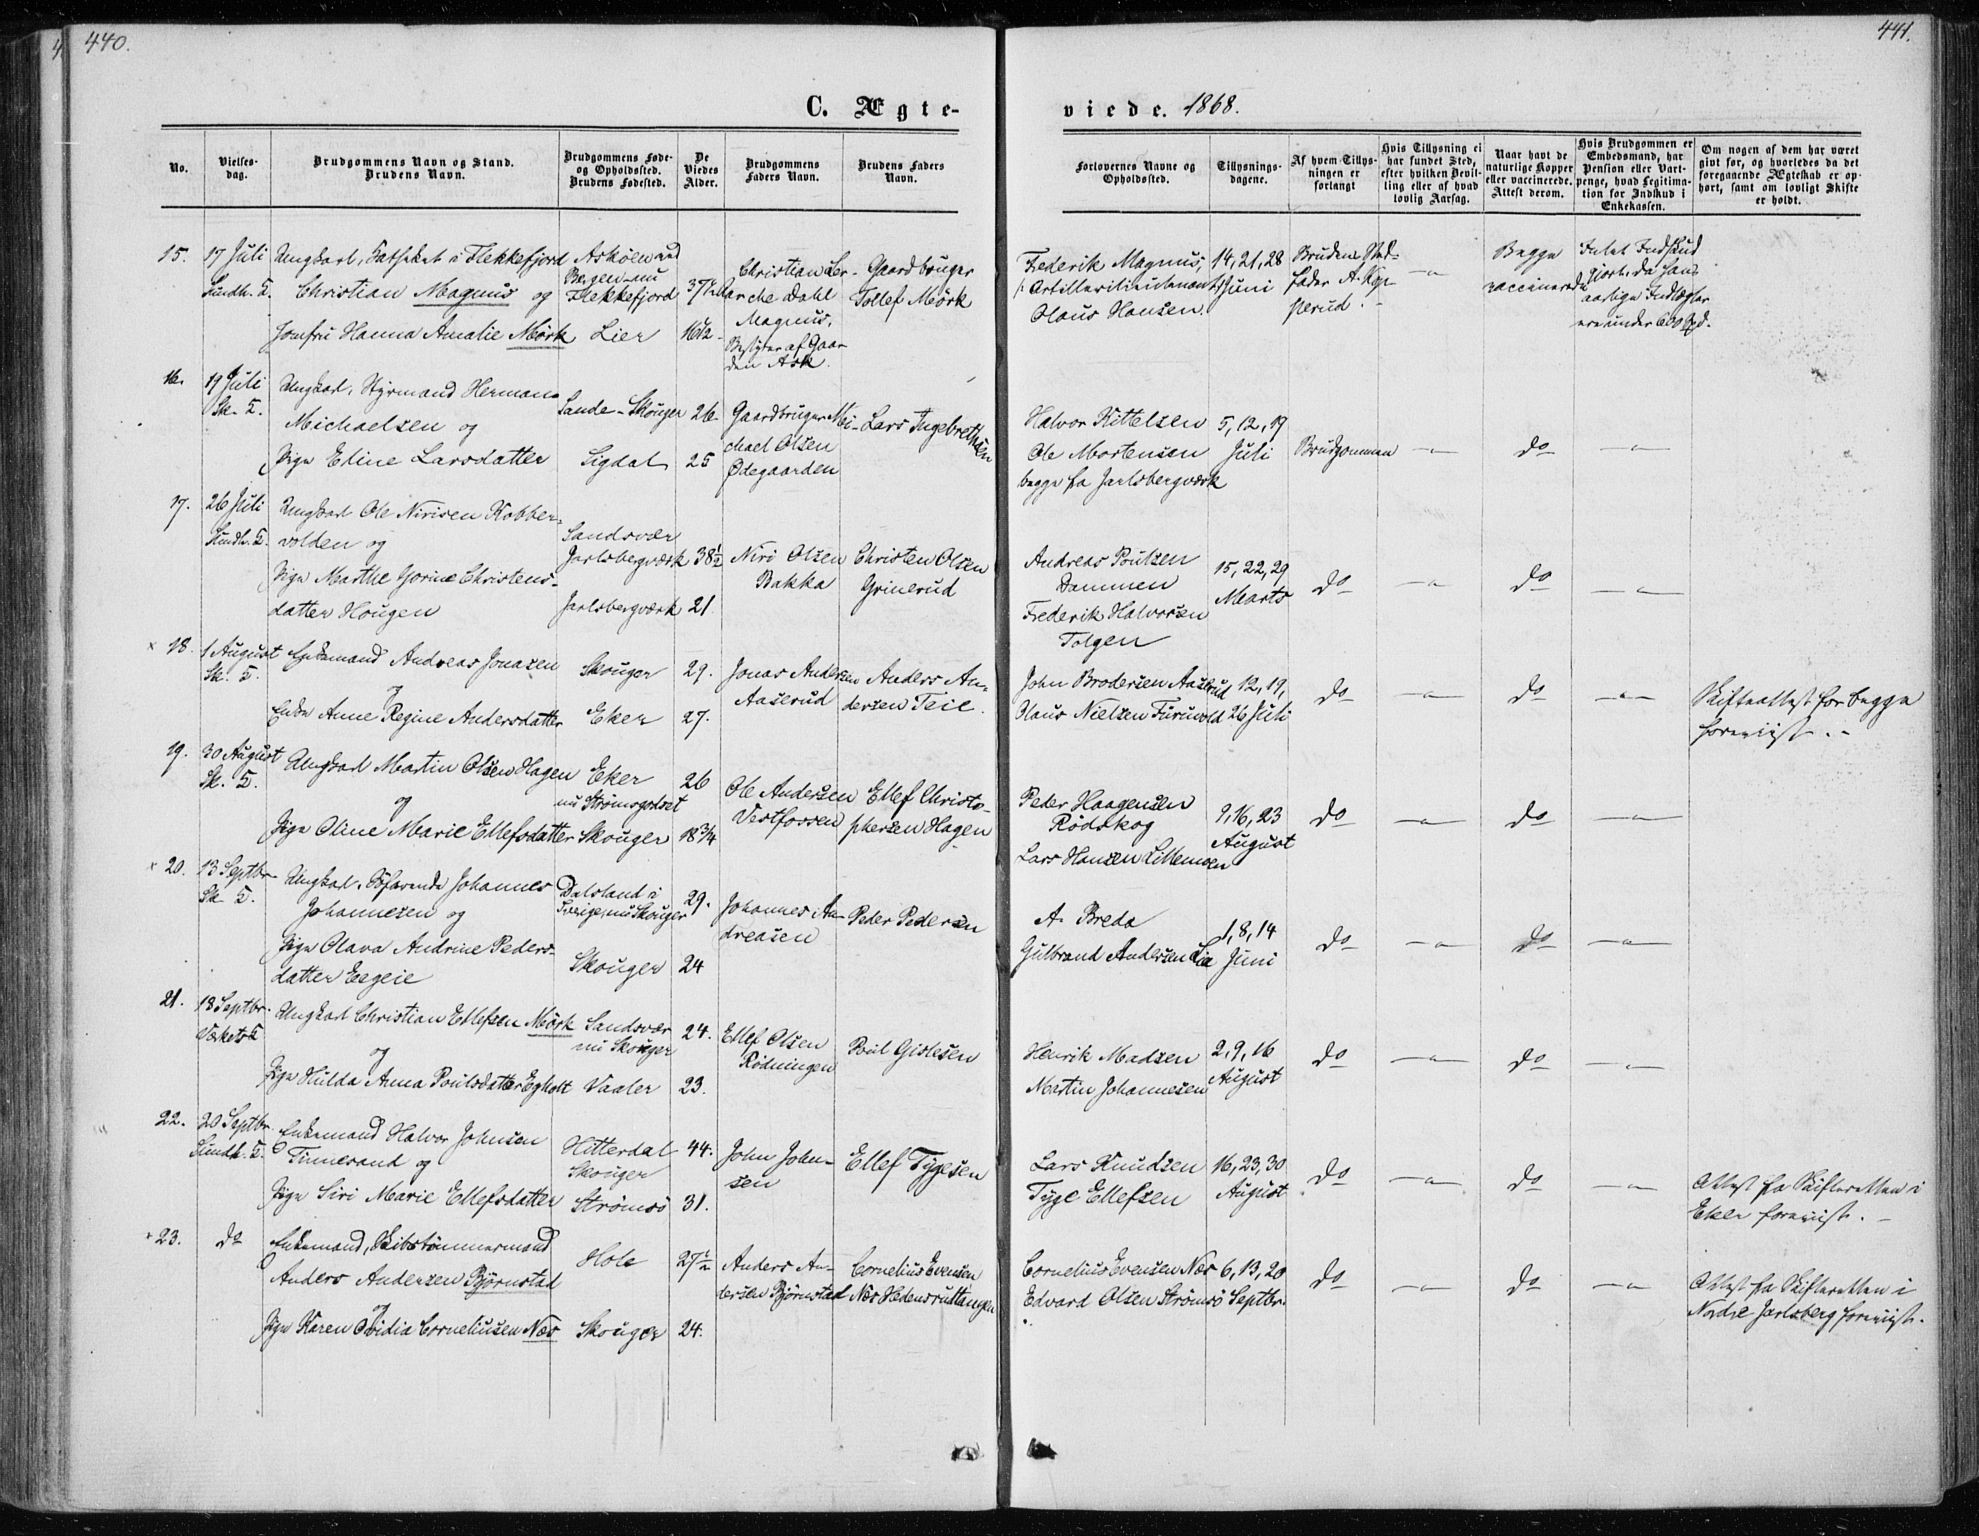 440.
441.
C. Ægte-
viede. 1868.
No.
Vielses-
dag.
Brudgommens Navn og Stand.
Brudens Navn.
Brudgommens Føde-
og Opholdssted.
Brudens Fødested.
De
Viedes
Alder.
Brudgommens
Faders Navn.
Brudens Faders
Navn.
Forlovernes Navne og
Opholdssted.
Tillysnings-
dagene.
Af hvem Tillys-
ningen er
forlangt
Hvis Tillysning ei
har fundet Sted,
efter hvilken Bevil-
ling eller af hvad
lovlig Aarsag.
Naar havt de
naturlige Kopper
eller vaccinerede.
Attest derom.
Hvis Brudgommen er
Embedsmand, har
Pension eller Vart-
penge, hvad Legitima-
tion for Indskud i
Enkekassen.
Om nogen af dem har været
givt før, og hvorledes da det
foregaaende Ægteskab er op-
hørt, samt om lovligt Skifte
er holdt.
15.
17 Juli
Sundh. T.
Ungkarl, i Flekkefjord
Christian Magnus og
Jomfru Hanna Amalie Mørk
Askøen ved
Bergen nu
Flekkefjord
Lier
37½
16½
Christian Ler-
che Dahl
Magnus,
Bestyrer af Gaar-
den Ask.
Gaardbruger
Tollef Mörk
Frederik Magnus,
Artillerilieutenant
Olaus Hansen.
14, 21, 28
Juni
Brudens Sted-
fader A. Kop-
perud.
Begge
vaccinerede
Intet Indskud
gjort, da hans
aarlige Indtægter
ere under 600 Spd.
16.
19 Juli
Sk. T.
Ungkarl, Styrmand Herman
Michaelsen og
Pige Eline Larsdatter
Sande - Skouger
Sigdal
26
25
Gaardbruger Mi-
chael Olsen
Ødegaarden
Lars Ingebrethsen
Halvor Kittelsen
Ole Mortensen
begge fra Jarlsbergværk
5, 12, 19
Juli
Brudgommen
do
17.
26 Juli
Sundh. T.
Ungkarl Ole Nirisen Kobber-
volden og
Pige Marthe Gorine Christens-
datter Hougen
Sandsvær
Jarlsbergværk
Jarlsbergværk
38½
21.
Niri Olsen
Bakka
Christen Olsen
Grinerud
Andreas Poulsen
Dammen
Frederik Halvorsen
Tolgen
15, 22, 29
Marts
do
do
× 18.
1 August
Sk. T.
Enkemand Andreas Jonasen
og
Enke Anne Regine Andersdatter
Skouger
Eker
29.
27.
Jonas Andersen
Aaserud
Anders An-
dersen Teie.
John Brodersen Aaserud
Olaus Nielsen Furuvold
12, 19,
26 Juli
do
do
Skifteattest for begge
foreviist.
19.
30 August
Sk. T.
Ungkarl Martin Olsen Hagen
og
Pige Oline Marie Ellefsdatter
Eker
nu Strømsgodset
Skouger
26
18¾
Ole Andersen
Vestfossen
Ellef Christo-
phersen Hagen
Peder Haagensen
Rødskog
Lars Hansen
9, 16, 23
August
do
do
× 20.
13 Septbr.
Sk. T.
Ungkarl, Søfarende Johannes
Johannesen og
Pige Olava Andrine Peders-
datter Eegeie
Dalsland i
Sverige, nu Skouger
Skouger
29.
24
Johannes An-
dreasen
Peder Pedersen
A. Breda
Gulbrand Andersen Lie
1, 8, 14
Juni
do
do
21.
18 Septbr.
T.
Ungkarl Christian Ellefsen Mørk
og
Pige Hulda Anna Poulsdatter Egholt
Sandsvær
nu Skouger
Vaaler
24.
23.
Ellef Olsen
Rødningen
Poul Gislesen
Henrik Madsen
Martin Johannesen
2, 9, 16
August
do
do
22.
20 Septbr.
Sundh. T.
Enkemand Halvor Johnsen
Tinnesand og
Pige Siri Marie Ellefsdatter
Hitterdal
Skouger
Strömsö
44.
31.
John John-
sen
Ellef Tygesen
Lars Knudsen
Tyge Ellefsen
16, 23, 30
August
do
do
Attest fra Skifteretten i
Eker foreviist.
× 23.
do
Enkemand, Skibstømmermand
Anders Andersen Bjørnstad
og
Pige Karen Ovidia Corneliusen Næs
Hole
Skouger
27½
24.
Anders An-
dersen Bjørnstad
Cornelius Evensen
Næs
Cornelius Evensen Næs
Edvard Olsen Strömsö
6, 13, 20
Septbr.
do
do
Attest fra Skifteretten i
Nordre Jarlsberg foreviist.